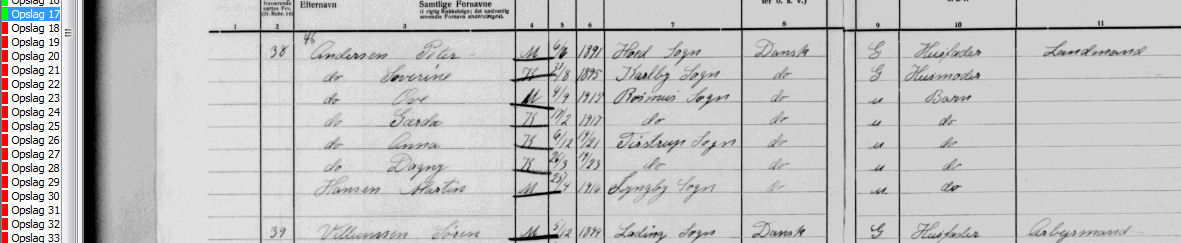 Opslag 16
Opslag 17
Opslag 18
Opslag 19
Opslag 20
Opslag 21
Opslag 22
Opslag 23
Opslag 24
Opslag 25
Opslag 26
Opslag 27
Opslag 28
Opslag 29
Opslag 30
Opslag 31
Opslag 32
Opslag 33
Efternavn Samtlige Fornavne
1 2 3 4 5 6 7 8 9 10 11
46
38 Andersen Peter M 1891 Hoed Sogn Dansk G Husfader Landmand
do Severine K /8 1895 Karlby Sogn do G Husmoder
do Ove M 4/9 1915 Rosmus Sogn do u Barn
do Gerda K 19/2 1917 do do u do
do Anna K 6/12 19/21 Tirstrup Sogn do u do
do Dagny K 26/3 19/23 do do u do
Hansen Martin M 25/4 1916 Lyngby Sogn do u do
39 Søren M 5/12 1894 Sogn Dansk G Husfader Arbejsmand